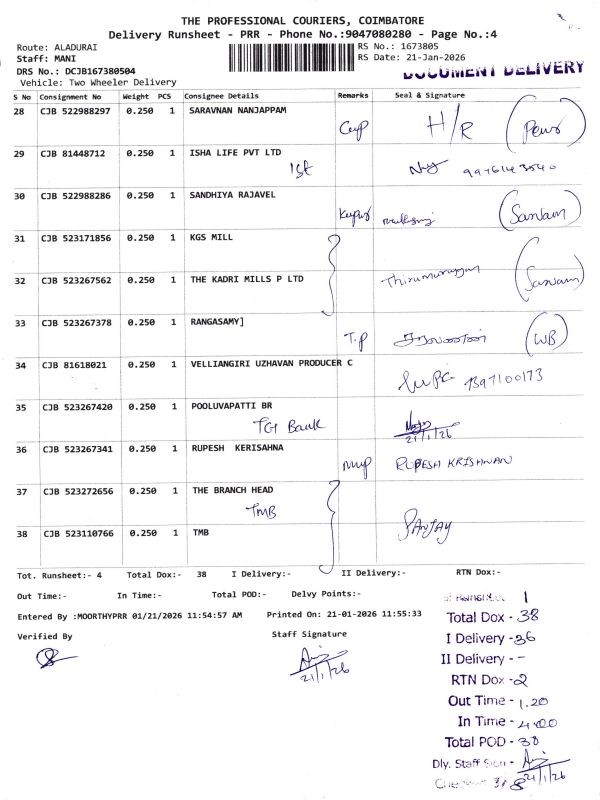 THE PROFESSIONAL COURIERS, COIMBATORE
Delivery Runsheet - PRR - Phone No.:9047080280 - Page No.:4
Route: ALADURAI
RS No.: 1673805
Staff: MANI
RS Date: 21-Jan-2026
DRS No.: DCJB167380504
DOCUMENT DELIVERY
Vehicle: Two Wheeler Delivery
S No Consignment No Weight PCS Consignee Details Remarks Seal & Signature
28 CJB 522988297 0.250 1 SARAVNAN NANJAPPAM H/R
29 CJB 81448712 0.250 1 ISHA LIFE PVT LTD
1st
30 CJB 522988286 0.250 1 SANDHIYA RAJAVEL
31 CJB 523171856 0.250 1 KGS MILL
32 CJB 523267562 0.250 1 THE KADRI MILLS P LTD Thirumurugan
33 CJB 523267378 0.250 1 RANGASAMY]
T.P சரவணன் (WB)
34 CJB 81618021 0.250 1 VELLIANGIRI UZHAVAN PRODUCER C
35 CJB 523267420 0.250 1 POOLUVAPATTI BR
TGT Bank 21/1/26
36 CJB 523267341 0.250 1 RUPESH KERISAHNA
RUPESH KRISHNAN
37 CJB 523272656 0.250 1 THE BRANCH HEAD
TMB
38 CJB 523110766 0.250 1 TMB SANJAY
Tot. Runsheet:- 4 Total Dox:- 38 I Delivery:- II Delivery:- RTN Dox:-
Out Time:- In Time:- Total POD:- Delvy Points:-
Entered By :MOORTHYPRR 01/21/2026 11:54:57 AM Printed On: 21-01-2026 11:55:33
Verified By Staff Signature
21/1/26
1
Total Dox - 38
I Delivery - 36
II Delivery - -
RTN Dox - 2
Out Time - 1.20
In Time - 4.00
Total POD - 38
Dly. Staff Sign -
21/1/26